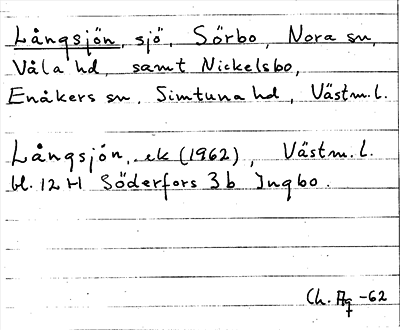 Långsjön, sjö, Sörbo, Nora sn,
Våla hd, samt Nickelsbo,
Enåkers sn, Simtuna hd, Västm.l.
Långsjön, ek (1962), Västm.l.
bl. 12 H Söderfors 3b Ingbo.
Ch. Ag -62